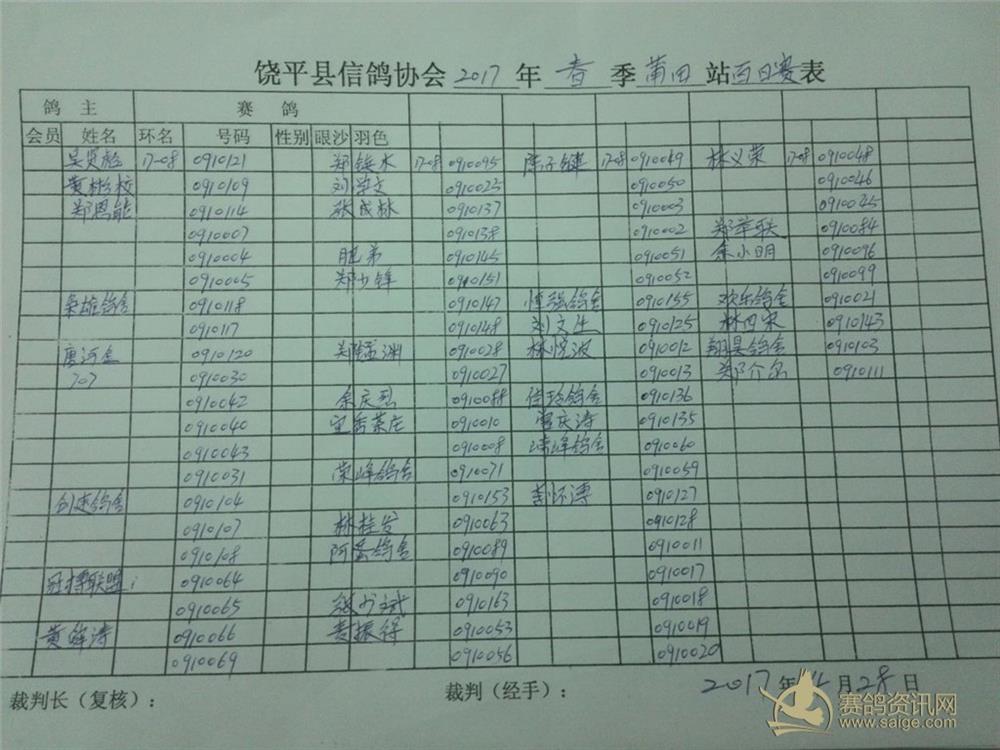 饶平县信鸽协会 2017 年 春 季 莆田 站 百日赛 表
鸽主 赛鸽
会员 姓名 环名 号码 性别 眼沙 羽色
17-08 0910121 17-08 0910095 17-08 0910049 林义荣 17-08 0910048
黄彬校 0910109 0910023 0910050 0910046
郑恩能 0910114 张成林 0910137 0910003 0910045
0910007 0910138 0910002 郑举联 0910084
0910004 肥弟 0910145 0910051 余小明 0910096
0910005 郑少锋 0910151 0910052 0910099
枭雄鸽舍 0910118 0910147 博强鸽舍 0910155 欢乐鸽舍 0910021
0910117 0910148 刘文生 0910125 林四宋 0910143
唐河金 0910120 郑猛渊 0910028 林悦波 0910012 翔昊鸽舍 0910103
707 0910030 0910027 0910013 郑介名 0910111
0910042 余庆烈 0910088 佳玲鸽舍 0910136
0910040 宝斋茶庄 0910010 詹庆涛 0910135
0910043 0910008 靖峰鸽舍 0910060
0910031 荣峰鸽舍 0910071 0910059
创速鸽舍 0910104 0910153 李怀溥 0910127
0910107 林桂发 0910063 0910128
0910108 阿荣鸽舍 0910089 0910011
冠博联盟 0910064 0910090 0910017
0910065 0910163 0910018
黄锦涛 0910066 麦振得 0910053 0910019
0910069 0910056 0910020
裁判长（复核）： 裁判（经手）： 2017 年 4 月 28 日
赛鸽资讯网
www.saige.com